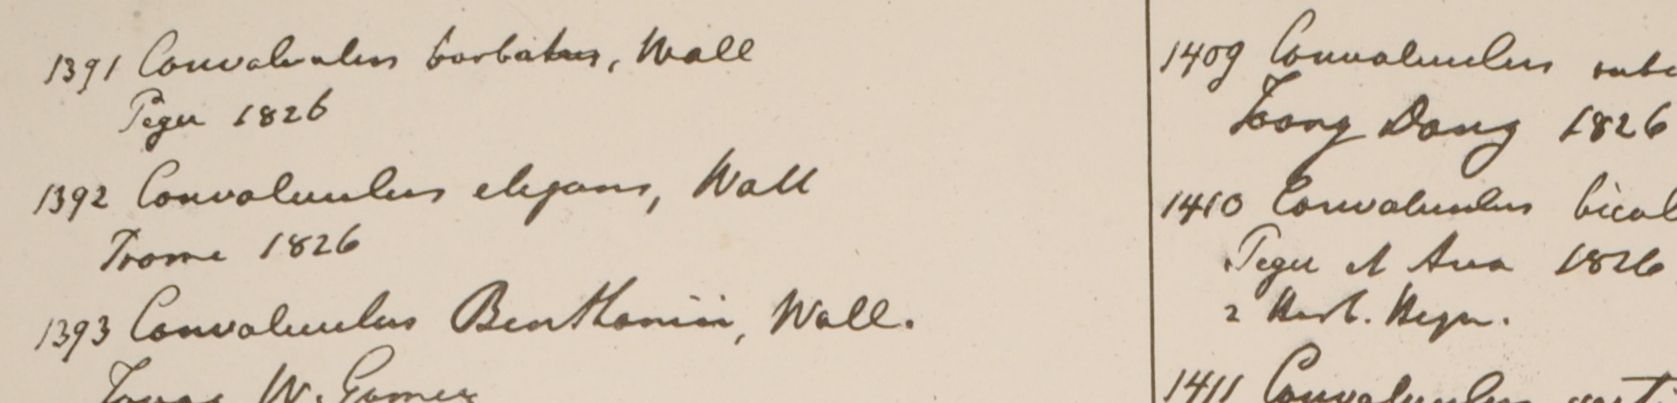 1391 Convolvulus barbatus, Wall
Pegu 1826
1392 Convolvulus elegans, Wall
Prome 1826
1393 Convolvulus Benthamii, Wall.
W. Gomez
1409 Convolvulus
Toong Dong 1826
1410 Convolvulus bicol
Pegu et Ava 1826
2 Herb. Heyn.
1411 Convolvulus